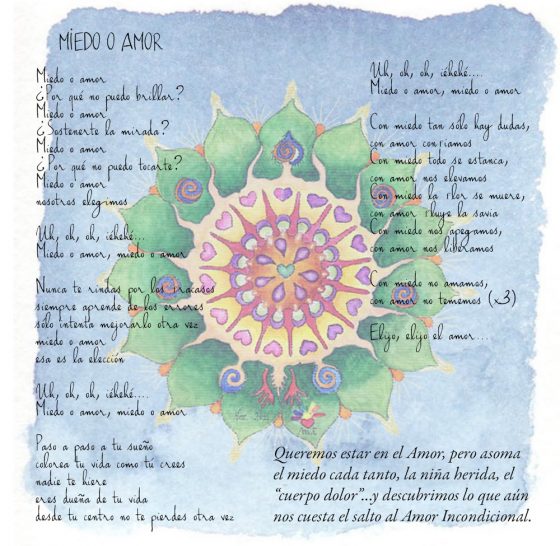 MIEDO O AMOR
Miedo o amor
¿Por qué no puedo brillar?
Miedo o amor
¿Sostenerte la mirada?
Miedo o amor
¿Por qué no puedo tocarte?
Miedo o amor
nosotros elegimos
Uh, oh, oh, iéhehé...
Miedo o amor, miedo o amor
Nunca te rindas por los fracasos
siempre aprende de los errores
sólo intenta mejorarlo otra vez
miedo o amor
esa es la elección
Uh, oh, oh, iéhehé....
Miedo o amor, miedo o amor
Paso a paso a tu sueño
colorea tu vida como tú crees
nadie te hiere
eres dueña de tu vida
desde tu centro no te pierdes otra vez
Uh, oh, oh, iéhehé....
Miedo o amor, miedo o amor
Con miedo tan sólo hay dudas,
con amor confiamos
Con miedo todo se estanca,
con amor nos elevamos
Con miedo la flor se muere,
con amor fluye la savia
Con miedo nos apegamos,
con amor nos liberamos
Con miedo no amamos,
con amor no tememos (x3)
Elijo, elijo el amor....
Queremos estar en el Amor, pero asoma
el miedo cada tanto, la niña herida, el
“cuerpo dolor”...y descubrimos lo que aún
nos cuesta el salto al Amor Incondicional.